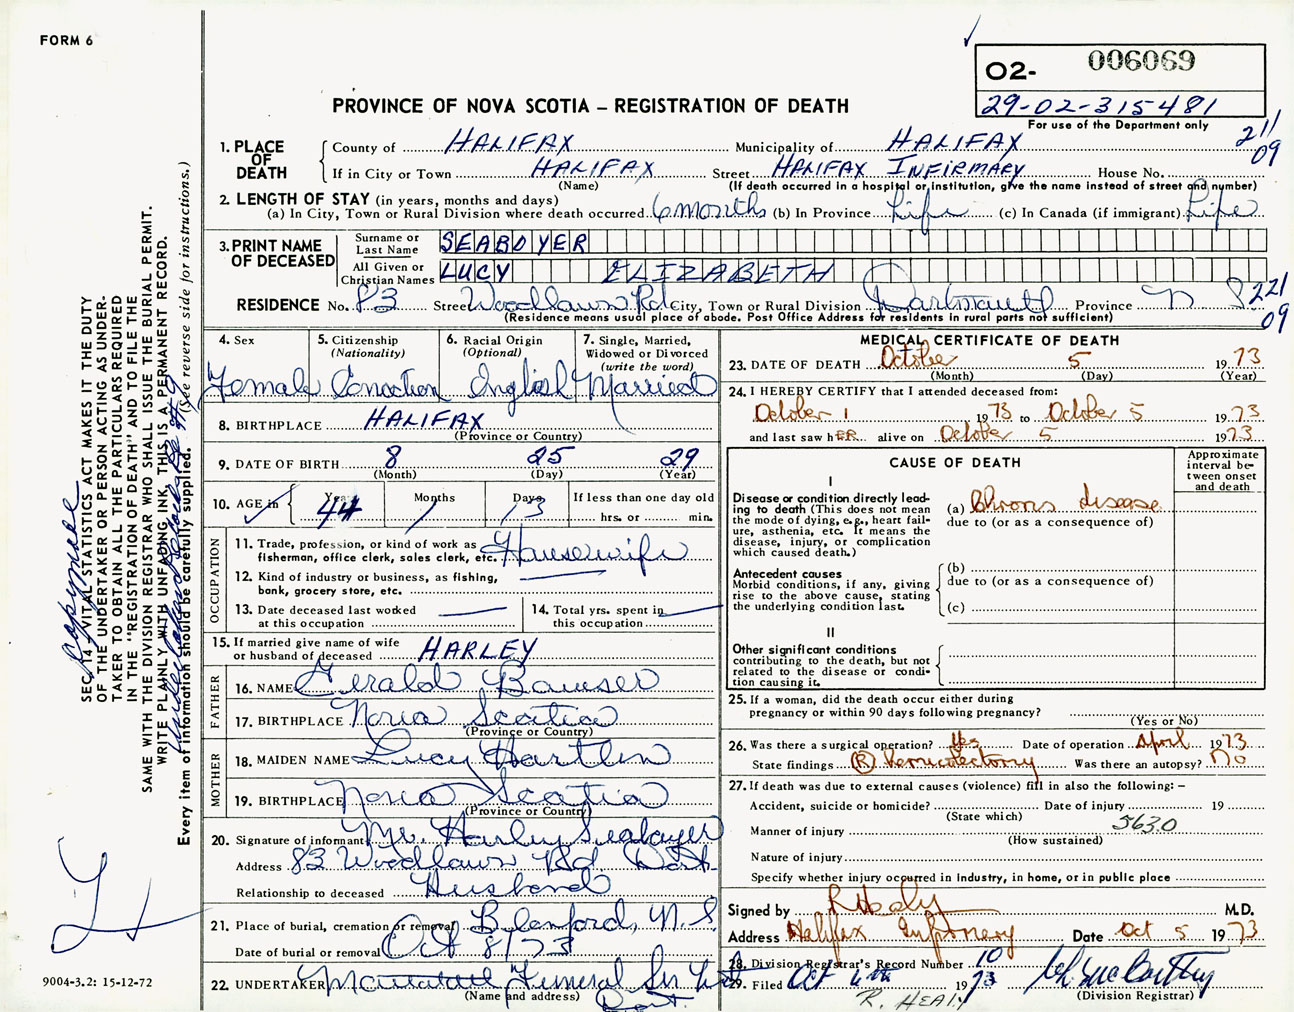 FORM 6
O2- 006069
29-02-315481
For use of the Department only
PROVINCE OF NOVA SCOTIA – REGISTRATION OF DEATH
1. PLACE OF DEATH County of HALIFAX Municipality of HALIFAX 211 09
If in City or Town HALIFAX Street HALIFAX INFIRMARY House No.
(Name) (If death occurred in a hospital or institution, give the name instead of street and number)
2. LENGTH OF STAY (in years, months and days)
(a) In City, Town or Rural Division where death occurred 6 months (b) In Province Life (c) In Canada (if immigrant) Life
3. PRINT NAME OF DECEASED
Surname or Last Name SEABOYER
All Given or Christian Names LUCY ELIZABETH
RESIDENCE No. 83 Street Woodlawn Rd City, Town or Rural Division Dartmouth Province N S 221 09
(Residence means usual place of abode. Post Office Address for residents in rural parts not sufficient)
4. Sex Female
5. Citizenship (Nationality) Canadian
6. Racial Origin (Optional) English
7. Single, Married, Widowed or Divorced (write the word) Married
8. BIRTHPLACE HALIFAX
(Province or Country)
9. DATE OF BIRTH 8 25 29
(Month) (Day) (Year)
10. AGE in Years 44 Months 1 Days 13 If less than one day old
hrs. or min.
OCCUPATION
11. Trade, profession, or kind of work as fisherman, office clerk, sales clerk, etc. Housewife
12. Kind of industry or business, as fishing, bank, grocery store, etc.
13. Date deceased last worked at this occupation
14. Total yrs. spent in this occupation
15. If married give name of wife or husband of deceased HARLEY
FATHER
16. NAME Gerald Bowser
17. BIRTHPLACE Nova Scotia
(Province or Country)
MOTHER
18. MAIDEN NAME Lucy Hartlin
19. BIRTHPLACE Nova Scotia
(Province or Country)
20. Signature of informant Mr. Harley Seaboyer
Address 83 Woodlawn Rd Dart.
Relationship to deceased Husband
21. Place of burial, cremation or removal Blanford, N.S
Date of burial or removal Oct 8/73
22. UNDERTAKER Funeral Ser
(Name and address) Dart.
MEDICAL CERTIFICATE OF DEATH
23. DATE OF DEATH October 5 1973
(Month) (Day) (Year)
24. I HEREBY CERTIFY that I attended deceased from:
October 1 1973 to October 5 1973
and last saw hER alive on October 5 1973
CAUSE OF DEATH
Approximate interval between onset and death
I
Disease or condition directly leading to death (This does not mean the mode of dying, e.g., heart failure, asthenia, etc. It means the disease, injury, or complication which caused death.)
(a) Chrons disease
due to (or as a consequence of)
Antecedent causes
Morbid conditions, if any, giving rise to the above cause, stating the underlying condition last.
(b)
due to (or as a consequence of)
(c)
II
Other significant conditions contributing to the death, but not related to the disease or condition causing it.
25. If a woman, did the death occur either during pregnancy or within 90 days following pregnancy?
(Yes or No)
26. Was there a surgical operation? Yes Date of operation April 1973
State findings (R) hemicolectomy Was there an autopsy? No
27. If death was due to external causes (violence) fill in also the following: –
Accident, suicide or homicide? Date of injury 19
(State which)
Manner of injury 563.0
(How sustained)
Nature of injury
Specify whether injury occurred in Industry, in home, or in public place
Signed by R Healy M.D.
Address Halifax Infirmary Date Oct 5 1973
28. Division Registrar's Record Number 10
29. Filed Oct 1973
R. HEALY (Division Registrar)
SEC. 14 – VITAL STATISTICS ACT MAKES IT THE DUTY
OF THE UNDERTAKER OR PERSON ACTING AS UNDER-
TAKER TO OBTAIN ALL THE PARTICULARS REQUIRED
IN THE "REGISTRATION OF DEATH" AND TO FILE THE
SAME WITH THE DIVISION REGISTRAR WHO SHALL ISSUE THE BURIAL PERMIT.
WRITE PLAINLY WITH UNFADING INK, THIS IS A PERMANENT RECORD.
Every item of information should be carefully supplied. (See reverse side for instructions.)
9004-3.2: 15-12-72